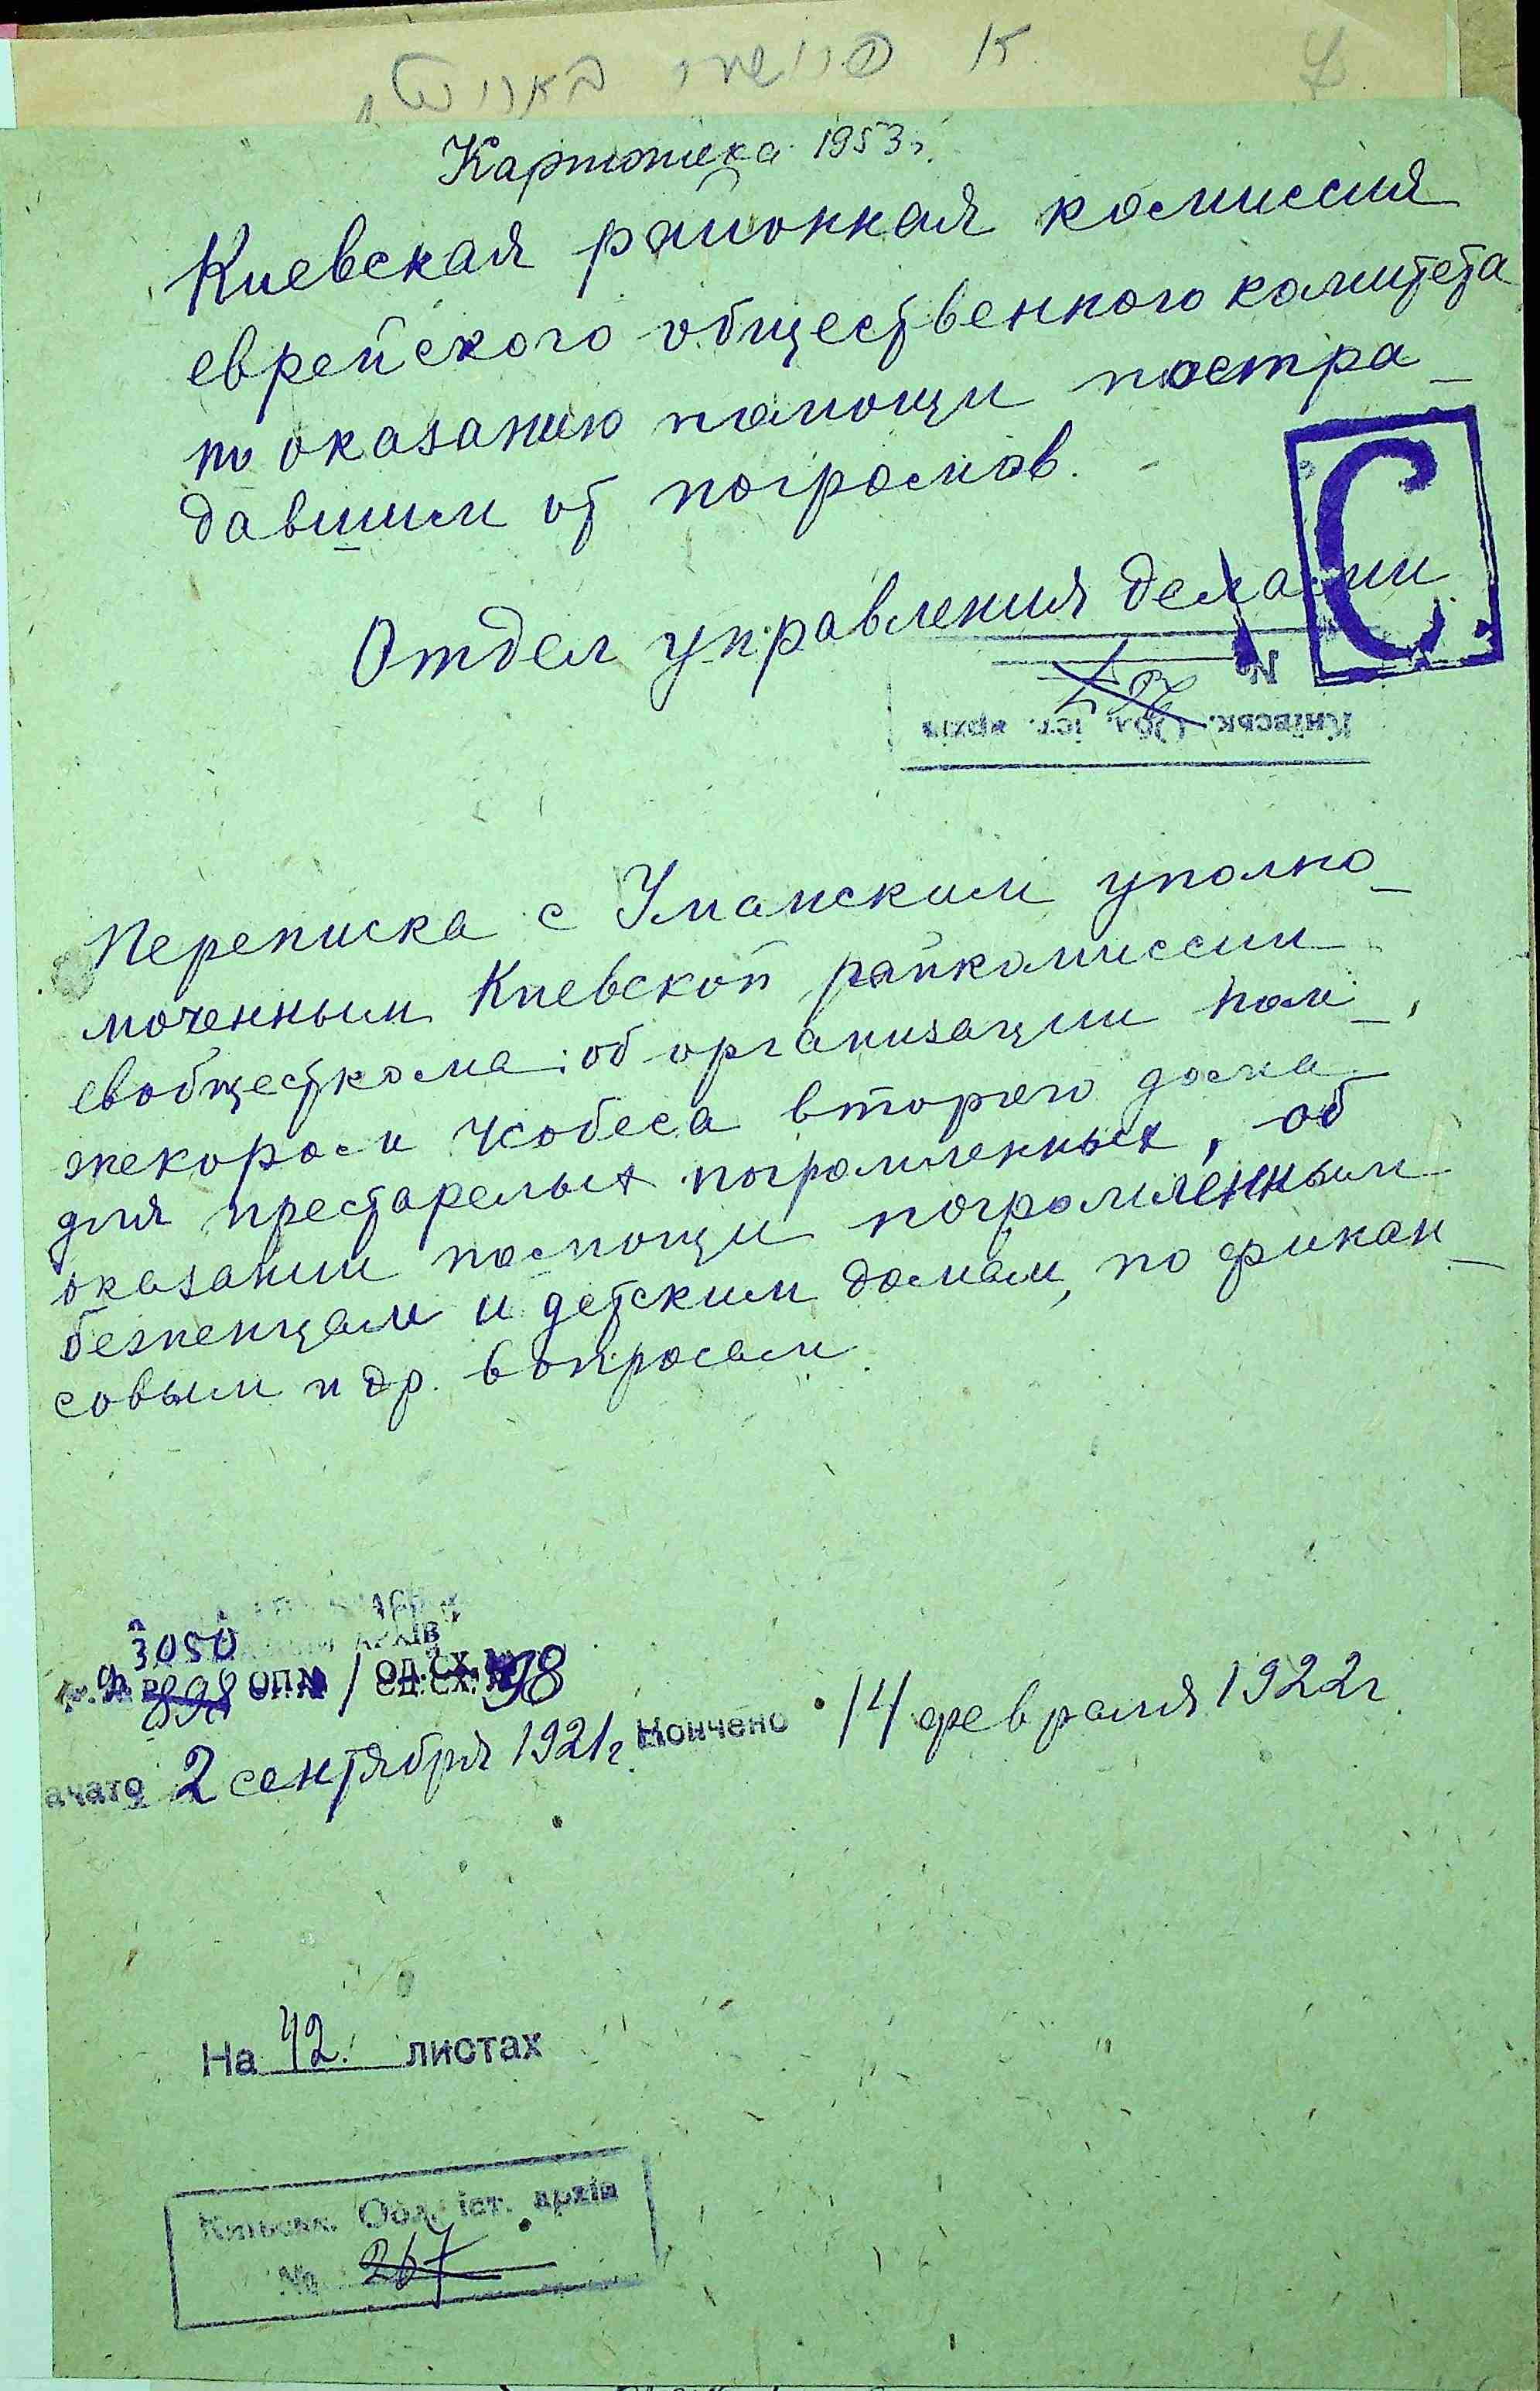 Картотека 1953г.
Киевская районная комиссия
еврейского общественного комитета
по оказанию помощи постра_
давшим от погромов.
Отдел управления делами
С
№
267
Київськ. Обл. іст. архів
Переписка с Уманским уполно_
моченным Киевской райкомиссии
евобщесткома: об организации
для престарелых погромленных, об
оказании помощи погромленным
беженцам и детским домам, по финан_
совым и др. вопросам.
АРХІВ
3050
Ф. 898 ОП.№ 1 ОД.СХ.№ 98
ачато 2 сентября 1921г. Кончено 14 февраля 1922г.
На 42. листах
Київськ. Обл. іст. архів
№ 267